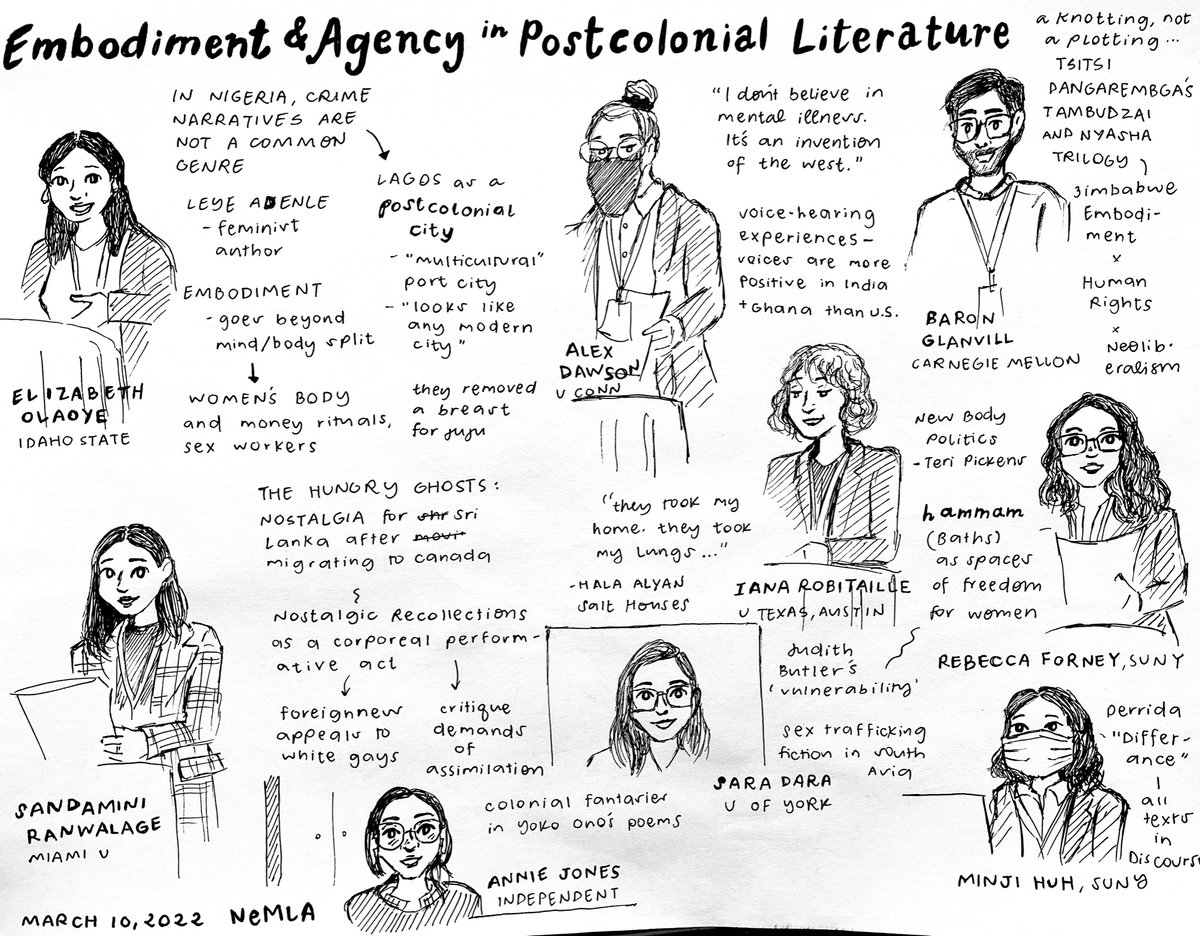 Embodiment & Agency in Postcolonial Literature
IN NIGERIA, CRIME
NARRATIVES ARE
NOT A COMMON
GENRE
LEYE ADENLE
- feminist
author
EMBODIMENT
- goes beyond
mind/body split
WOMEN'S BODY
and money rituals,
sex workers
LAGOS as a
postcolonial
city
- "multicultural"
port city
- "looks like
any modern
city"
they removed
a breast
for juju
ELIZABETH
OLAOYE
IDAHO STATE
"I don't believe in
mental illness.
It's an invention
of the west."
voice-hearing
experiences-
voices are more
positive in India
+ Ghana than U.S.
ALEX
DAWSON
U CONN
a knotting, not
a plotting...
TSITSI
DANGAREMBGA'S
TAMBUDZAI
AND NYASHA
TRILOGY
Zimbabwe
Embodi-
ment
x
Human
Rights
x
Neolib-
eralism
BARON
GLANVILL
CARNEGIE MELLON
THE HUNGRY GHOSTS:
NOSTALGIA for shr Sri
Lanka after movi
migrating to canada
Nostalgic Recollections
as a corporeal perform-
ative act
foreignness
appeals to
white gays
critique
demands
of
assimilation
SANDAMINI
RANWALAGE
MIAMI U
"they took my
home. they took
my lungs..."
-HALA ALYAN
Salt Houses
IANA ROBITAILLE
U TEXAS, AUSTIN
New Body
Politics
- Teri Pickens
hammam
(Baths)
as spaces
of freedom
for women
Judith
Butler's
'vulnerability'
REBECCA FORNEY, SUNY
sex trafficking
fiction in south
Asia
SARA DARA
U OF YORK
Derrida
- "Differ-
ance"
all
texts
in
Discourse
MINJI HUH, SUNY
colonial fantasies
in Yoko Ono's poems
ANNIE JONES
INDEPENDENT
MARCH 10, 2022 NeMLA